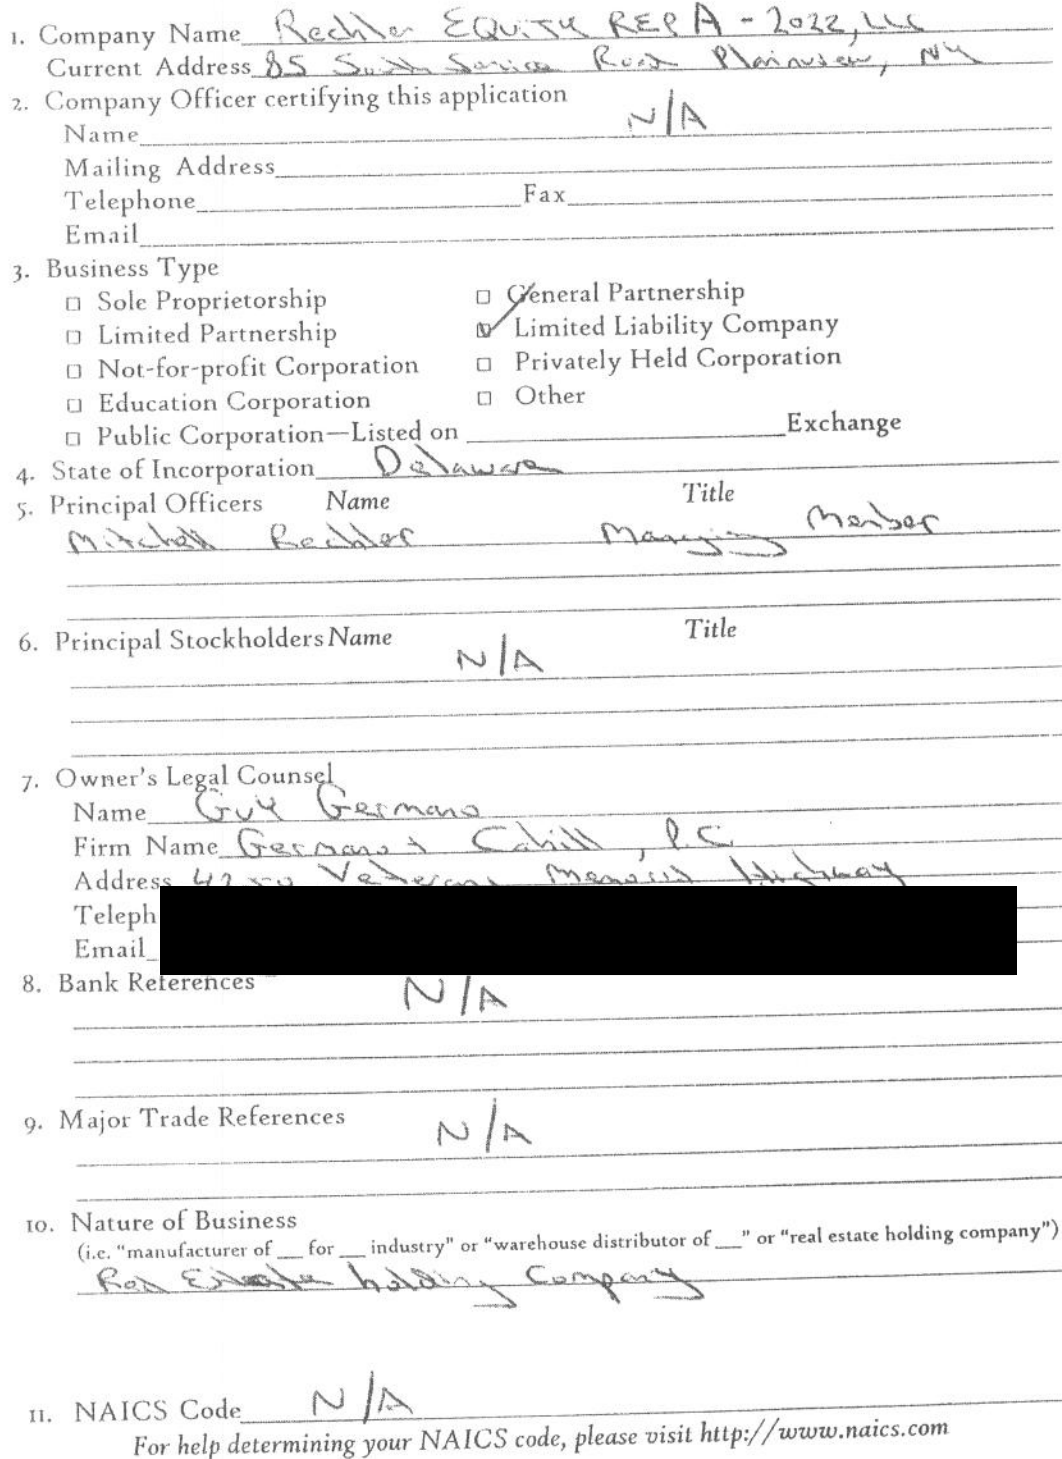 1. Company Name Rechler EQUITY REP A - 2022, LLC
Current Address 85 South Service Road Plainview, NY
2. Company Officer certifying this application
Name N/A
Mailing Address
Telephone Fax
Email
3. Business Type
□ Sole Proprietorship □ General Partnership
□ Limited Partnership ☑ Limited Liability Company
□ Not-for-profit Corporation □ Privately Held Corporation
□ Education Corporation □ Other
□ Public Corporation—Listed on Exchange
4. State of Incorporation Delaware
5. Principal Officers Name Title
Mitchell Rechler Managing Member
6. Principal Stockholders Name Title
N/A
7. Owner's Legal Counsel
Name Guy Germano
Firm Name Germano & Cahill, P.C.
Address Veterans Memorial Highway
Teleph
Email
8. Bank References
N/A
9. Major Trade References
N/A
10. Nature of Business
(i.e. "manufacturer of __ for __ industry" or "warehouse distributor of __" or "real estate holding company")
Real Estate holding Company
11. NAICS Code N/A
For help determining your NAICS code, please visit http://www.naics.com